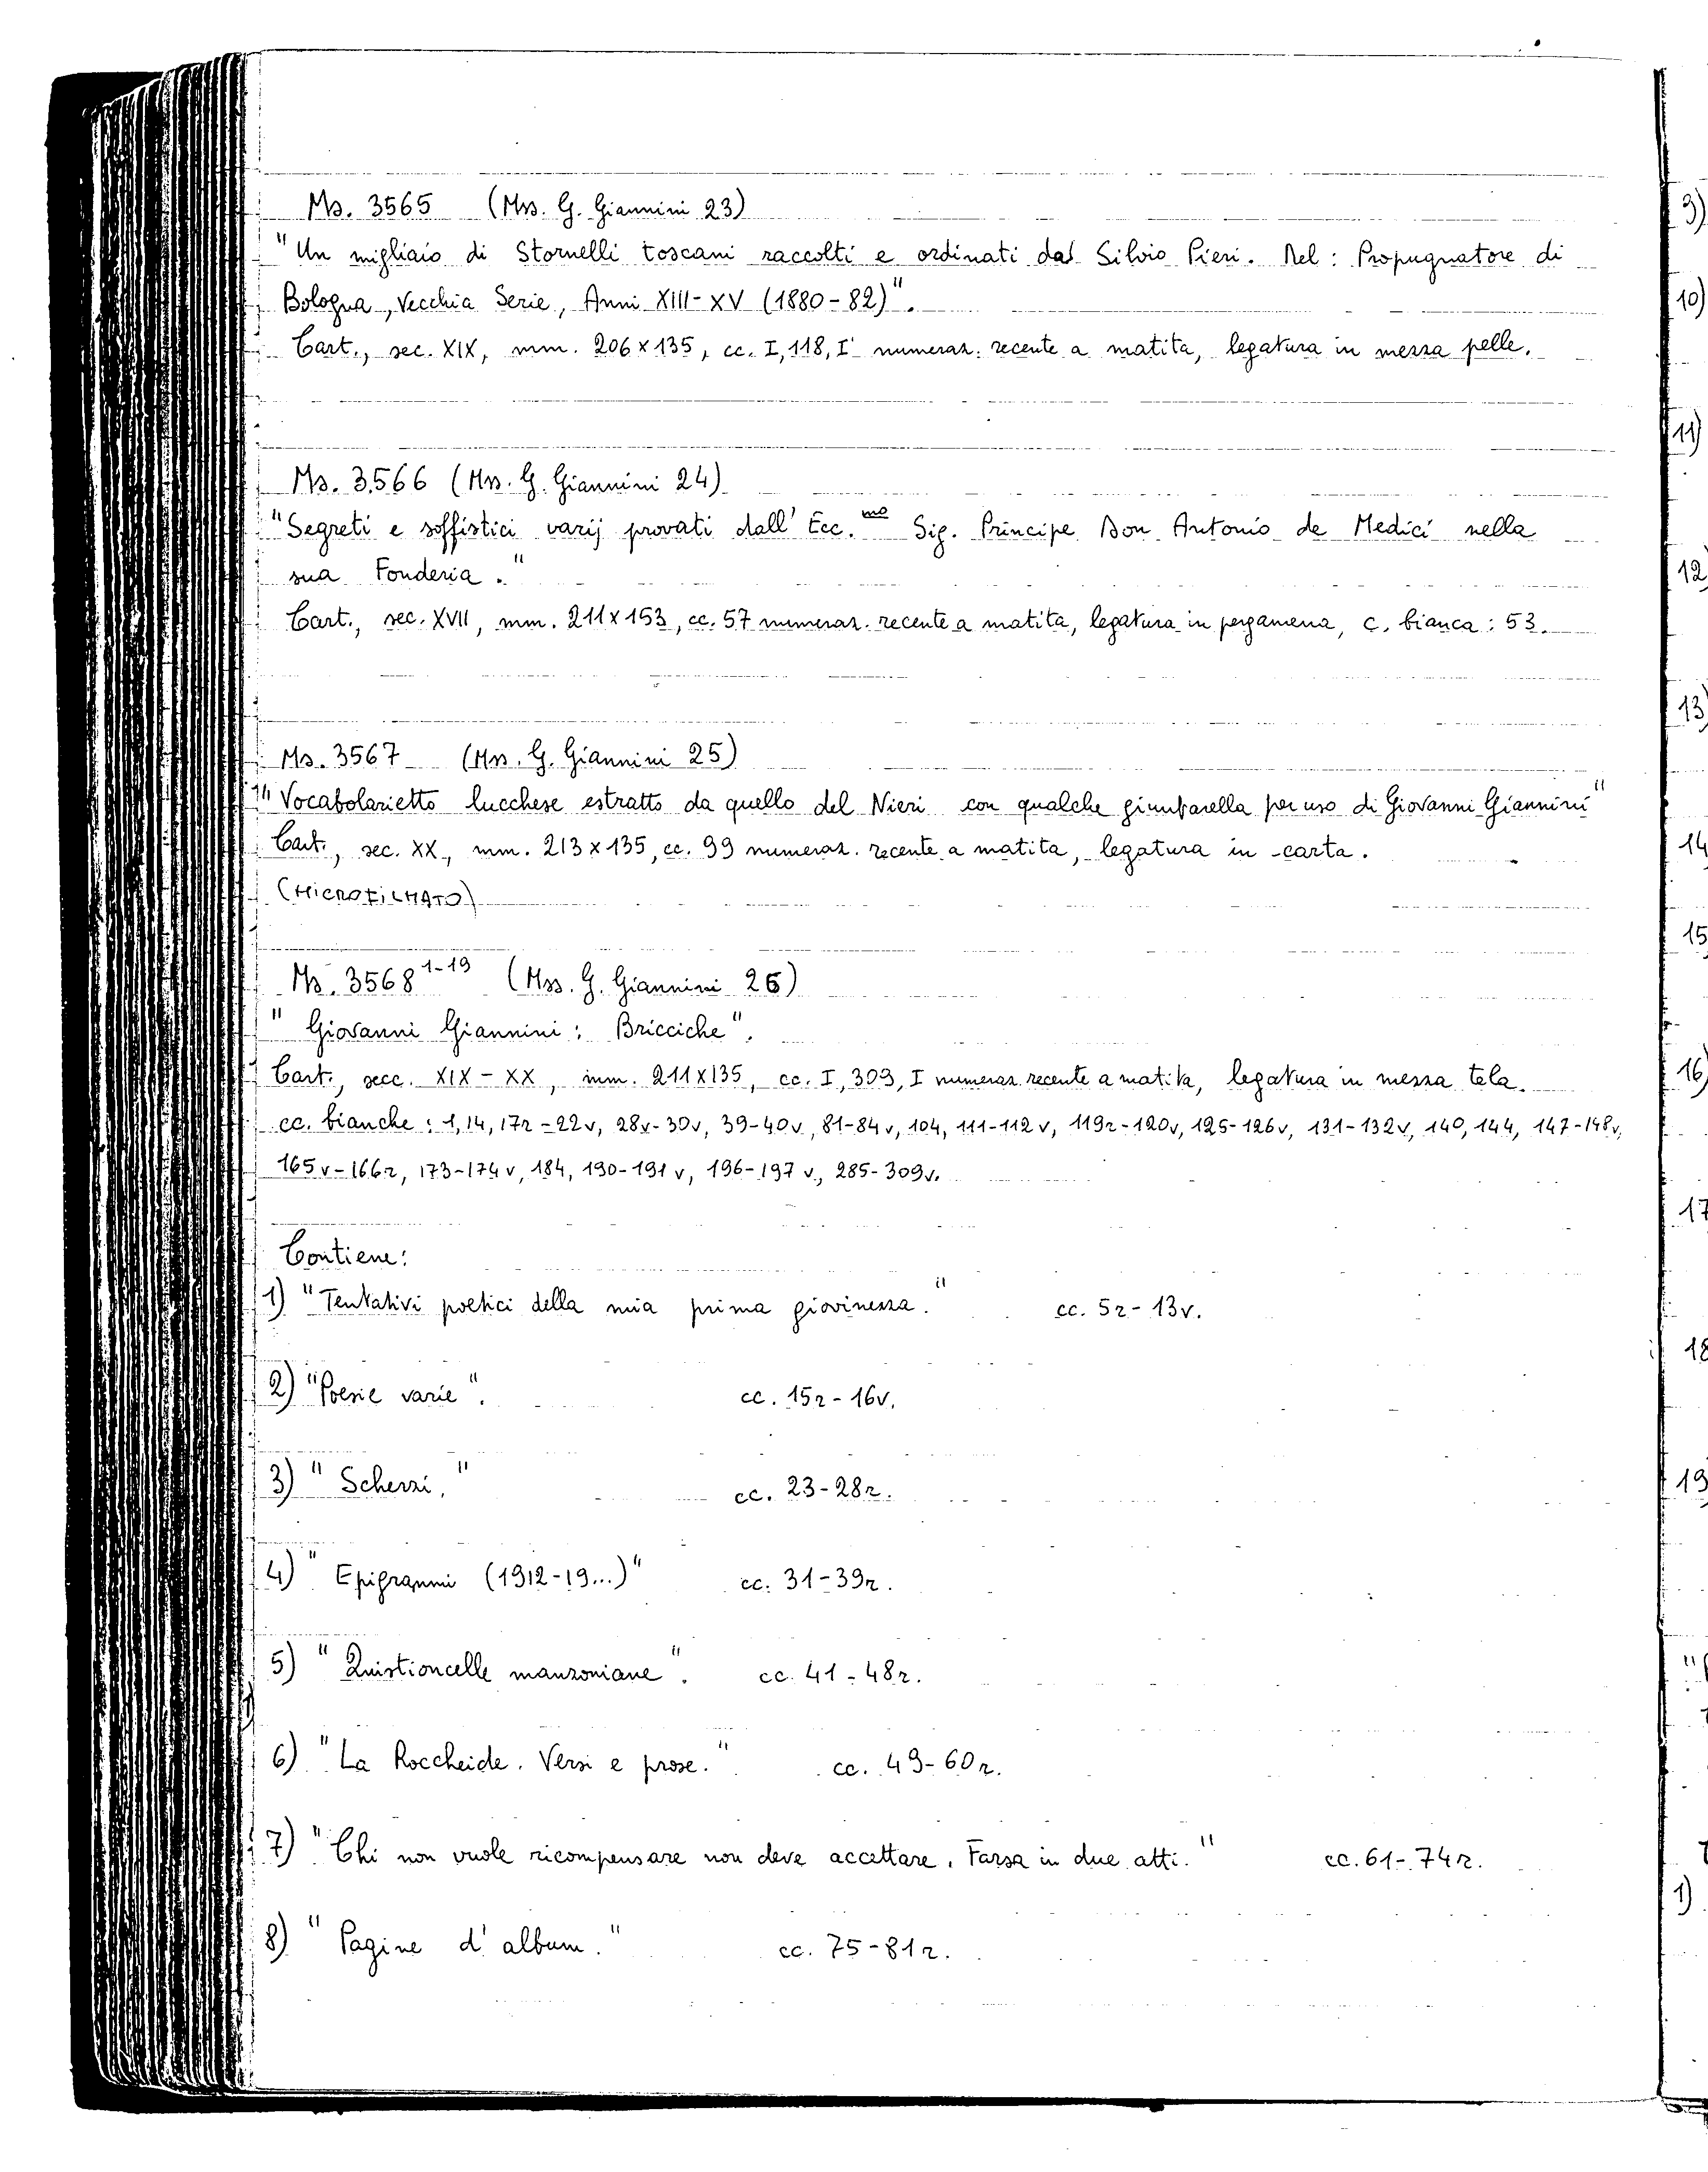 Ms. 3565 (Mss. G. Giannini 23)
"Un migliaio di Stornelli toscani raccolti e ordinati dal Silvio Pieri. Nel: Propugnatore di
Bologna, Vecchia Serie, Anni XIII-XV (1880-82)".
Cart., sec. XIX, mm. 206x135, cc. I, 118, I' numeraz. recente a matita, legatura in mezza pelle.
Ms. 3566 (Mss. G. Giannini 24)
"Segreti e soffistici varij provati dall'Ecc.mo Sig. Principe Don Antonio de Medici nella
sua Fonderia."
Cart., sec. XVII, mm. 211x153, cc. 57 numeraz. recente a matita, legatura in pergamena, c. bianca: 53.
Ms. 3567 (Mss. G. Giannini 25)
"Vocabolarietto lucchese estratto da quello del Nieri con qualche giuntarella per uso di Giovanni Giannini"
Cart., sec. XX, mm. 213x135, cc. 99 numeraz. recente a matita, legatura in carta.
(MICROFILMATO)
Ms. 3568 1-19 (Mss. G. Giannini 26)
"Giovanni Giannini: Bricciche".
Cart., secc. XIX-XX, mm. 211x135, cc. I, 309, I numeraz. recente a matita, legatura in mezza tela.
cc. bianche: 1, 14, 17r-22v, 28v-30v, 39-40v, 81-84v, 104, 111-112v, 119r-120v, 125-126v, 131-132v, 140, 144, 147-148v,
165v-166r, 173-174v, 184, 190-191v, 196-197v, 285-309v.
Contiene:
1) "Tentativi poetici della mia prima giovinezza." cc. 5r-13v.
2) "Poesie varie". cc. 15r-16v.
3) "Scherzi." cc. 23-28r.
4) "Epigrammi (1912-19...)" cc. 31-39r.
5) "Quistioncelle manzoniane". cc. 41-48r.
6) "La Roccheide. Versi e prose." cc. 49-60r.
7) "Chi non vuole ricompensare non deve accettare. Farsa in due atti." cc. 61-74r.
8) "Pagine d'album." cc. 75-81r.
9)
10)
11)
12)
13)
14
15
16)
17
18
19
1)